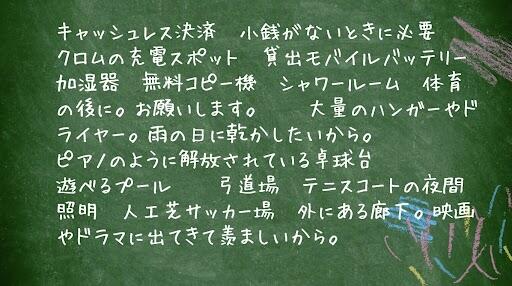 キャッシュレス決済　小銭がないときに必要
クロムの充電スポット　貸出モバイルバッテリー
加湿器　無料コピー機　シャワールーム　体育
の後に。お願いします。　　大量のハンガーやド
ライヤー。雨の日に乾かしたいから。
ピアノのように解放されている卓球台
遊べるプール　　弓道場　テニスコートの夜間
照明　人工芝サッカー場　外にある廊下。映画
やドラマに出てきて羨ましいから。